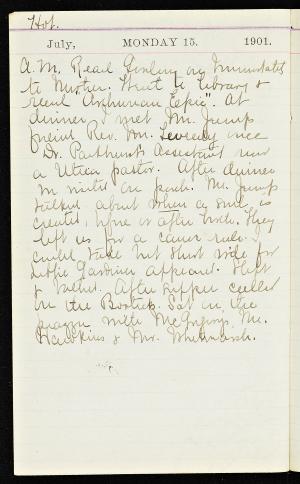 Hot.
July, MONDAY 15. 1901.
A.M. Read on Immortality
to Mother. Went to library &
read "Arthurian Epic". At
dinner I met Mr. Jump's
friend Rev. Mr. once
Dr. Parkhurst's Assistant now
a Utica pastor. After dinner
on porch. Mr. Jump
talked about when a soul is
created, before or after birth. They
left us for a canoe ride. I
could take but short ride for
Lottie Gardiner appeared. Slept
& bathed. After supper called
on the Bostick. Sat on the
piazza with McGregory, Mr.
Hawkins & Mr. Whitmarsh.